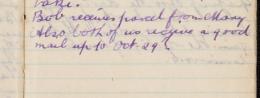 Bob receives parcel from Mary
Also both of us receive a good
mail up to Oct. 29.